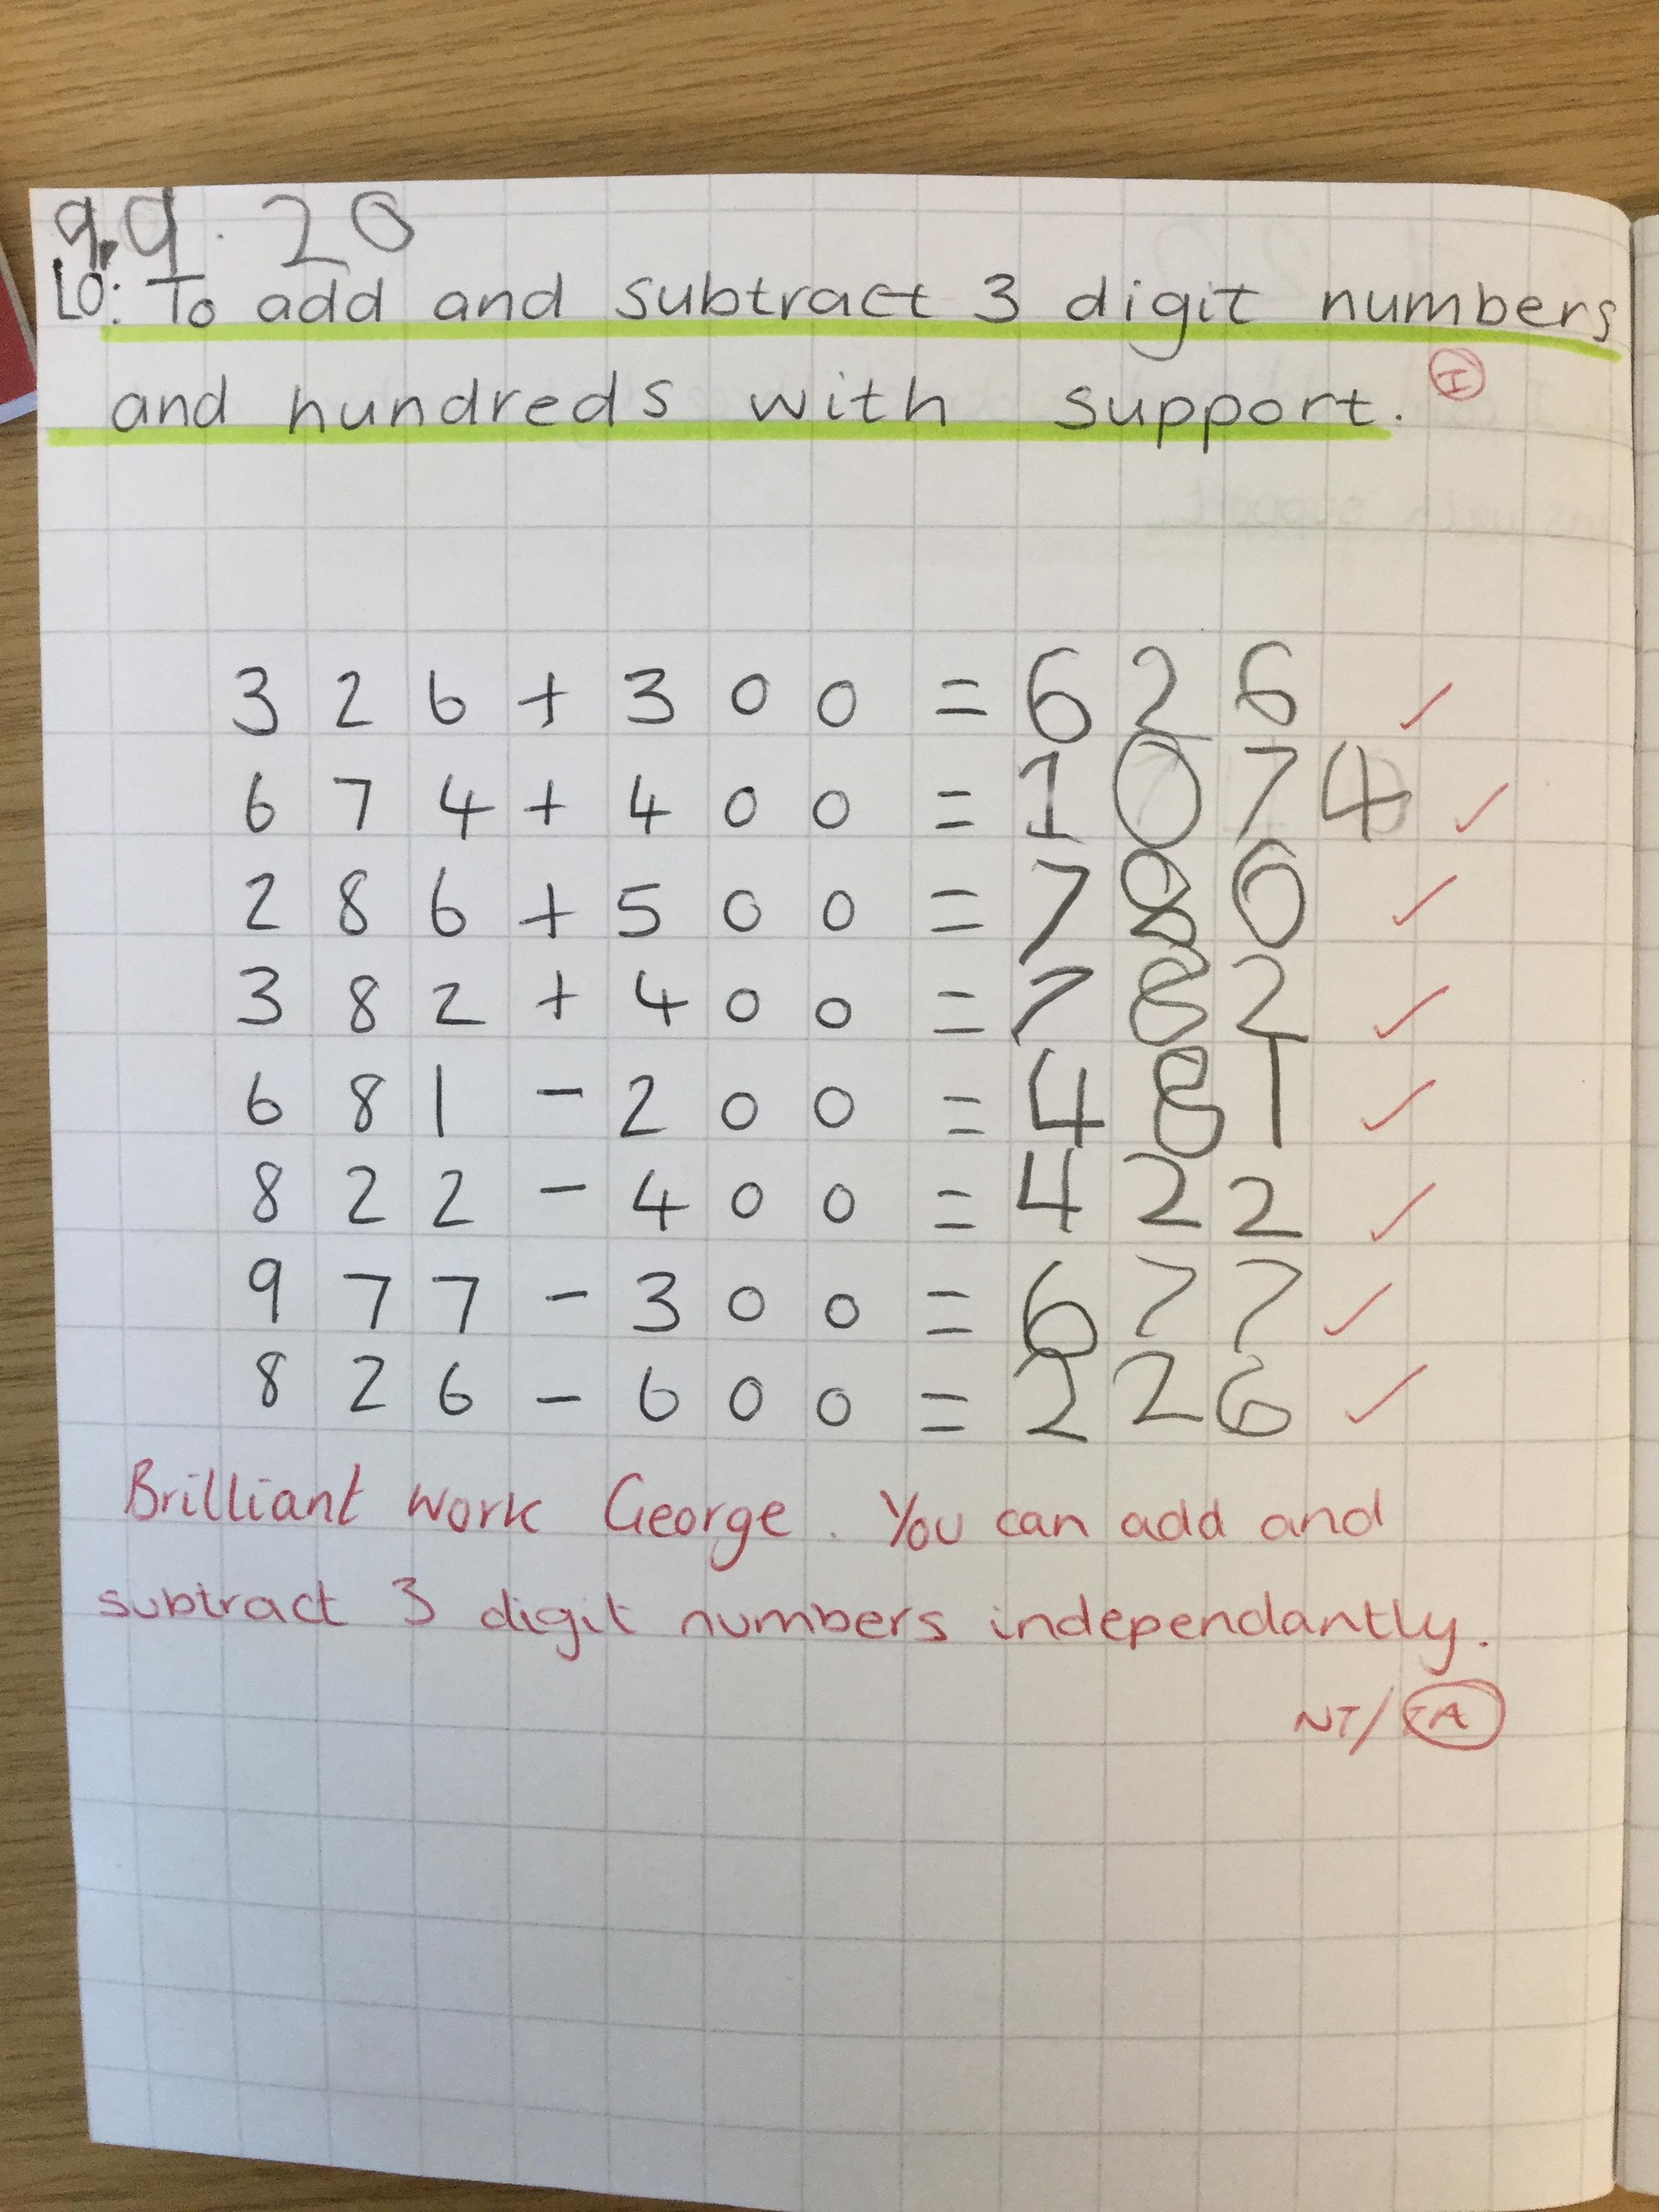 9.9.20
LO: To add and subtract 3 digit numbers
and hundreds with support. I
326 + 300 = 626 ✓
674 + 400 = 1074 ✓
286 + 500 = 780 ✓
382 + 400 = 782 ✓
681 - 200 = 481 ✓
822 - 400 = 422 ✓
977 - 300 = 677 ✓
826 - 600 = 226 ✓
Brilliant work George. You can add and
subtract 3 digit numbers independantly.
NT/TA